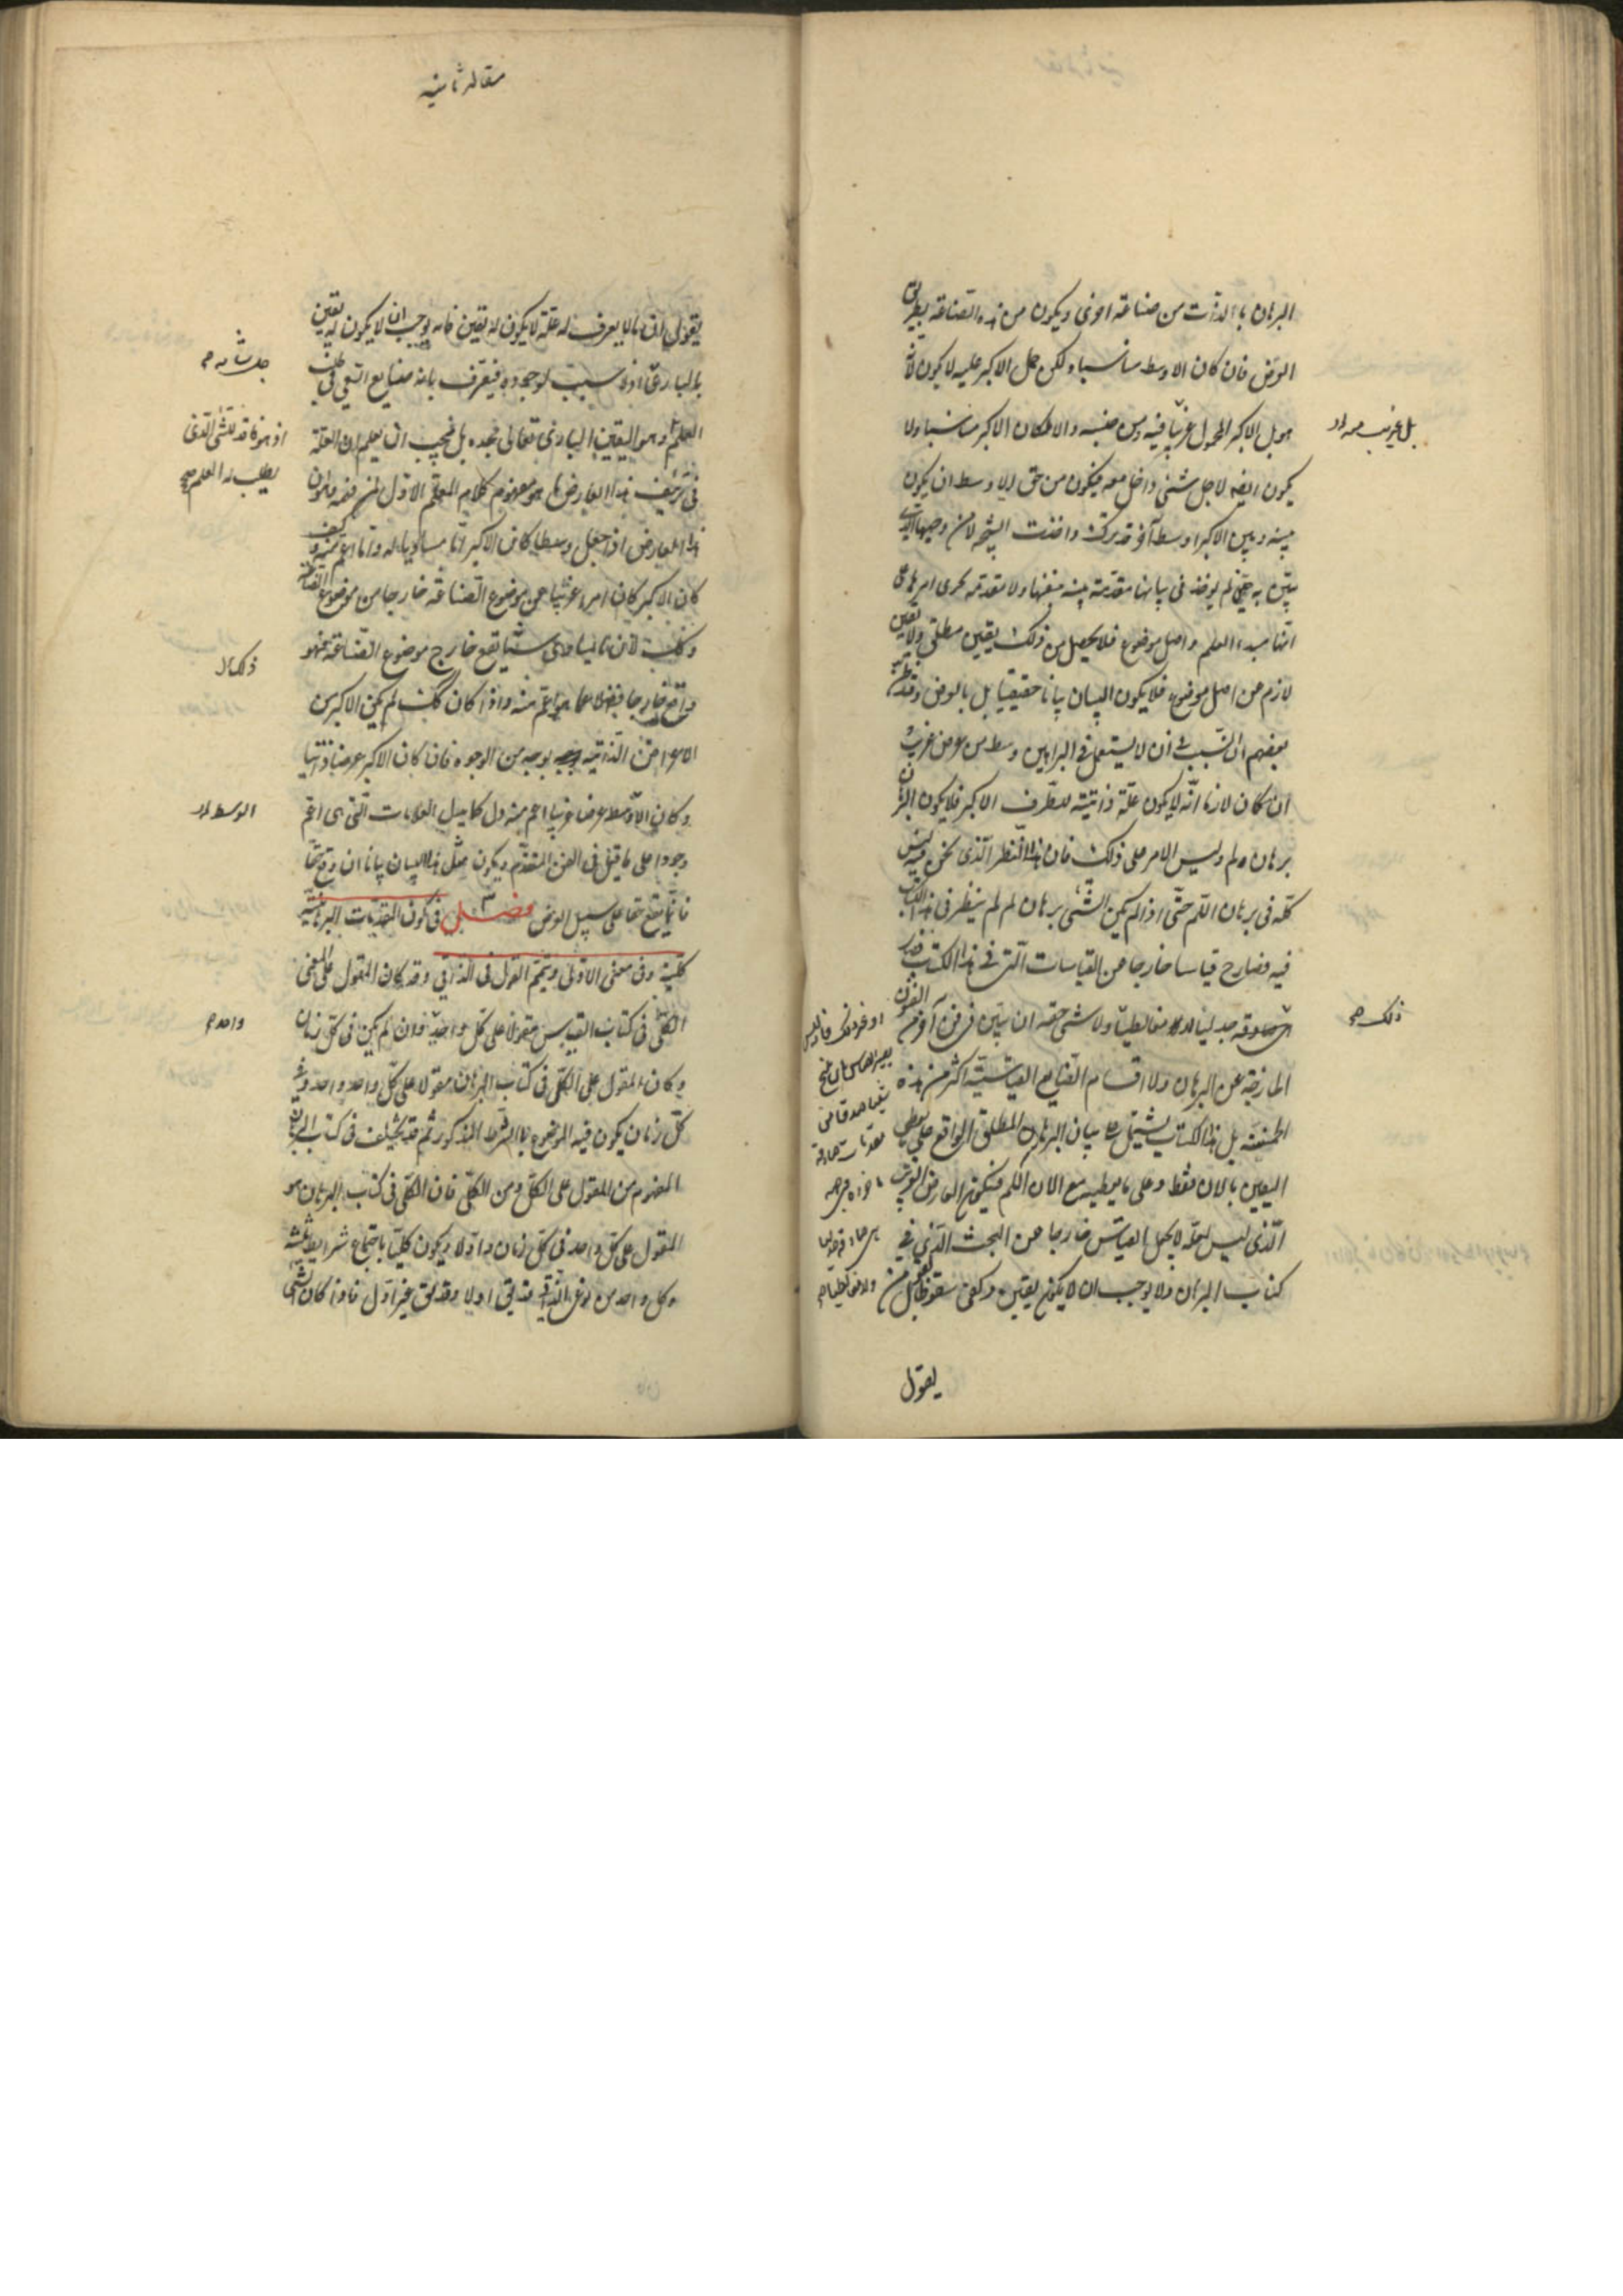 البرهان بالذات من صناعة اخرى ويكون من هذه الصناعة بطريق
العرض فان كان الاوسط مناسبا ولكن حمل الاكبر عليه لا يكون لانه
هو بل الاكبر المحمول غريبا فيه ومن جنسه والا لكان الاكبر مناسبا ولا
بل غريب
يكون ايضه لاجل شئ داخل معه فيكون من حق الاوسط ان يكون
بينه وبين الاكبر اوسط آخر قد ترك واخذت النتيجه لا من وجهها الذى
يتبين به حتى لم يؤخذ فى بيانها مقدمة بينه بنفسها ولا مقدمه مجرى امرها على
انها مبدء العلم واصل موضوع فلا يحصل من ذلك يقين مطلق ولا يقين
لازم عن اصل موضوع فلا يكون البيان بيانا حقيقيا بل بالعرض وقد ظن
بعضهم ان السبب فى ان لا يستعمل فى البراهين وسط من عرض غريب
ان كان لازما انه لا يكون علة ذاتية للطرف الاكبر فلا يكون البرهان
برهان لم وليس الامر على ذلك فان هذا النظر الذى نحن فيه ليس
كله فى برهان اللم حتى اذا لم يكن الشئ برهان لم لم ينظر فى هذا الكتاب
فيه فصار ح قياسا خارجا من القياسات التى فى هذا الكتاب
ولا شئ حقه ان يبين فى فن آخر من الفنون
ذلك صح
الخارجة عن البرهان ولا اقسام الصنايع القياسية اكثر من هذه
الخمسة بل هذا الكتاب يشتمل على بيان البرهان المطلق الواقع على ما يعطى
اليقين بالان فقط وعلى ما يعطيه مع الان اللم فيكون العارض الغريب
الذى ليس بعلة لا يجعل القياس خارجا عن البحث الذى فى
كتاب البرهان ولا يوجب ان لا يكون يقين وكفى سقوطا بقول من
يقول
مقاله ثانيه
يقول ان ما لا يعرف له علة لا يكون له يقين فانه يوجب ان لا يكون له يقين
بالبارى عز اذ لا سبب لوجوده فيعترف بانه ضايع السعى فى طلب
جل شانه
العلم وهو اليقين البارى تعالى مجده بل يجب ان يعلم ان العلة
اذ هو فاقد للشئ الذى
يطلب له العلم صح
فى تزييف هذا العارض ما هو مفهوم كلام المعلم الاول لمن فهمه وهو ان
هذا العارض اذا جعل وسطا كان الاكبر اما مساويا له واما اعم منه وكيف
كان الاكبر كان امرا غريبا عن موضوع الصناعة خارجا من موضوع الصناعة
وذلك لان ما يساوى شيئا يقع خارج موضوع الصناعة فهو
واقع خارجا فضلا عما هو اعم منه واذا كان كذلك لم يكن الاكبر من
الاعراض الذاتيه بوجه من الوجوه فان كان الاكبر عرضا ذاتيا
وكان الاوسط عرضا غريبا اعم منه دل كما يدل العلامات التى هى اعم
وجودا على ما قيل فى الفن المتقدم ويكون مثل هذا البيان بيانا ان وقع حقا
فانما يقع حقا على سبيل العرض فصل ٣ فى كون المقدمات البرهانية
كلية وفى معنى الاولى وتتميم القول فى الذاتى وقد كان المقول على المعنى
الكلى فى كتاب القياس مقولا على كل واحد وان لم يكن فى كل زمان
واحد
وكان المقول على الكل فى كتاب البرهان مقولا على كل واحد واحد وفى
كل زمان يكون فيه الموضوع بالشرط المذكور ثم قد يختلف فى كتاب البرهان
المفهوم من المقول على الكل ومن الكلى فان الكلى فى كتاب البرهان هو
المقول على كل واحد فى كل زمان واولا ويكون كليا باجتماع شرايط ثلثه
وكل واحد من نوعى الذاتى قد يق اولا وقد يق غير اول فاذا كان الشئ